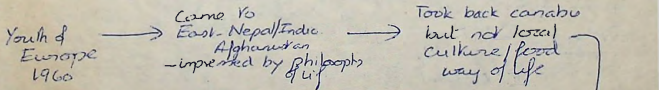 Youth of
Europe
1960
Came to
East-Nepal/India
Afghanistan
-impressed by philosophy
of life
Took back canabu
but not local
culture/food
way of life